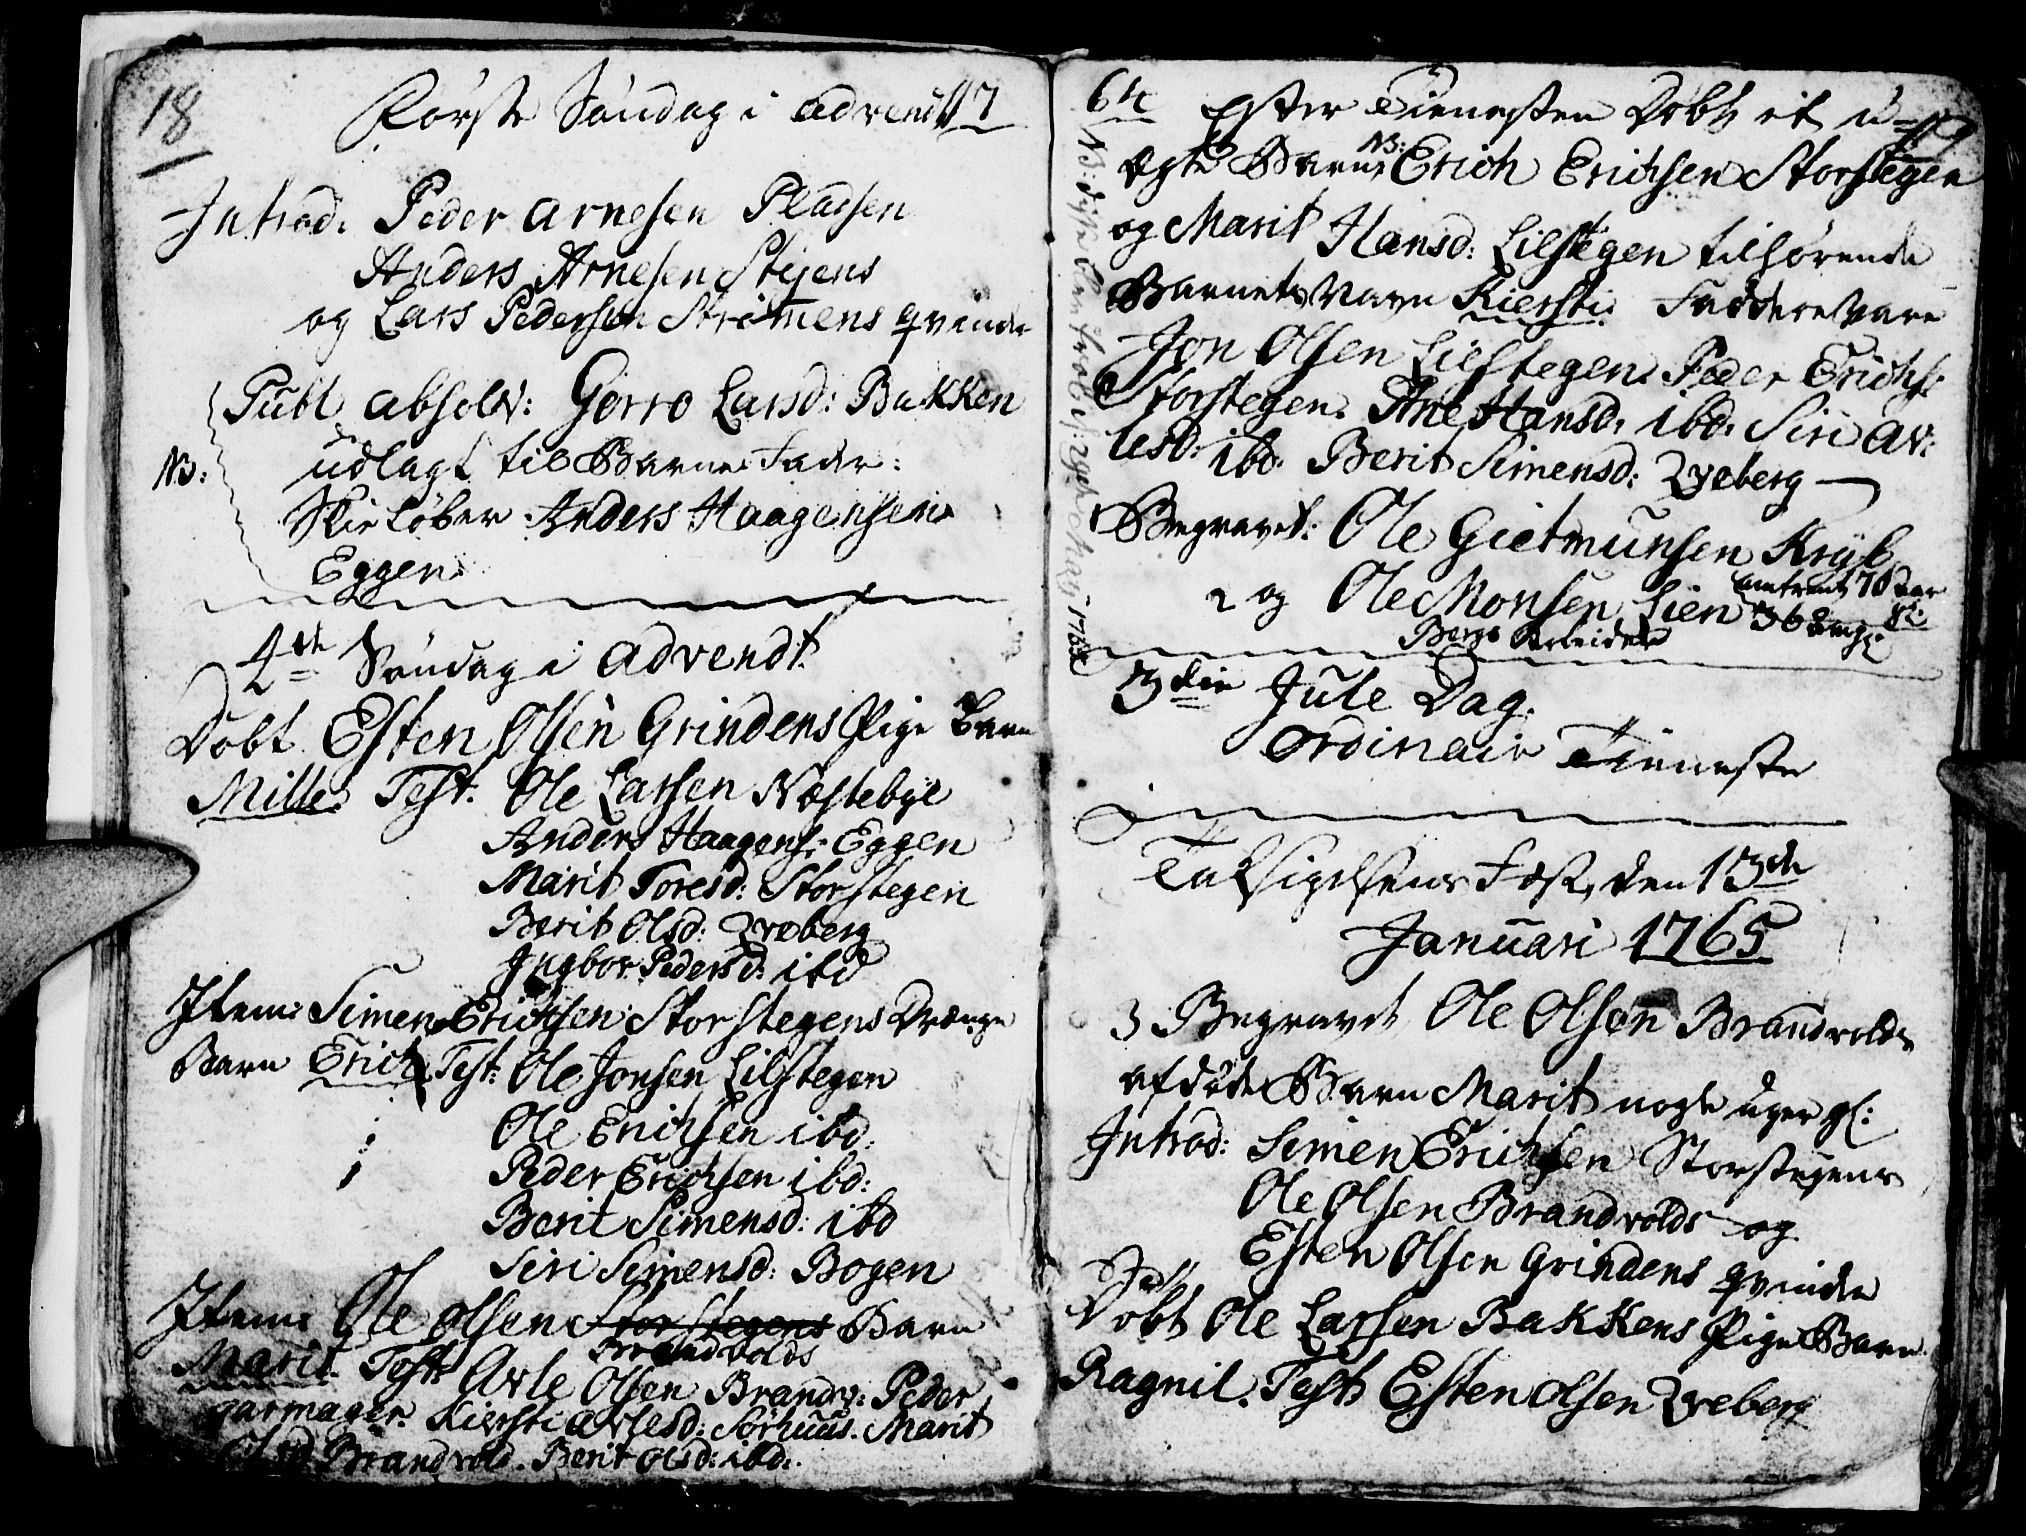 18
Første Søndag i Advendt 17
Introd. Peder Arnesen Plassen
Anders Arnesen Stejens
og Lars Pedersen Strömens qvinde
Publ. absolv: Gorro Larsd: Bakken
NB: udlagt til Barne Fader:
Skie Løber Anders Haagensen
Eggen.
4de Søndag i Advendt.
Døbt Esten Olsen Grindens Pige Barn
Mille. Test: Ole Larsen Næstebye
Anders Haagens: Eggen
Marit Toresd: Storstegen
Berit Olsd: Qveberg
Ingbor Pedersd: ibd
Item: Simen Erichsen Storstegens Drænge
Barn Erich Test: Ole Jonsen Lilstegen
Ole Erichsen ibd:
Peder Erichsen ibd:
Berit Simensd: ibd
Siri Simensd: Bogen
Item: Ole Olsen Storstegens Barn
Brandvolds
Marit. Test: Arle Olsen Brandv: Peder
garmager. Kiersti Arlesd: Sørhuus. Marit
Olsd Brandvold. Berit Olsd: ibd:
64 Efter Tienesten Døbt et u-
ægte Barn NB: Erich Erichsen Storstegen
og Marit Hansd: Lilstegen tilhørende
Barnets Navn Kiersti. Faddere vare
Jon Olsen Lilstegen. Peder Erichs:
Storstegen. Ane Hansd. ibd. Siri Ar:
lesd: ibd. Berit Simensd: Qveberg
Begravet: Ole Gietmunsen Krÿl
omtrent 70 aar
2 og Ole Monsen Lien 36
Bergs Arbeider
3die Jule Dag.
Ordinair Tieneste
Taksigelsens Fest, den 13de
Januari 1765
3 Begravet Ole Olsen Brandvolds
afdøde Barn Marit nogle uger gl:
Introd: Simen Erichsen Storstegens
Ole Olsen Brandvolds og
Esten Olsen Grindens qvinde
Døbt Ole Larsen Bakkens Pige Barn
Ragnil. Test: Esten Olsen Qveberg